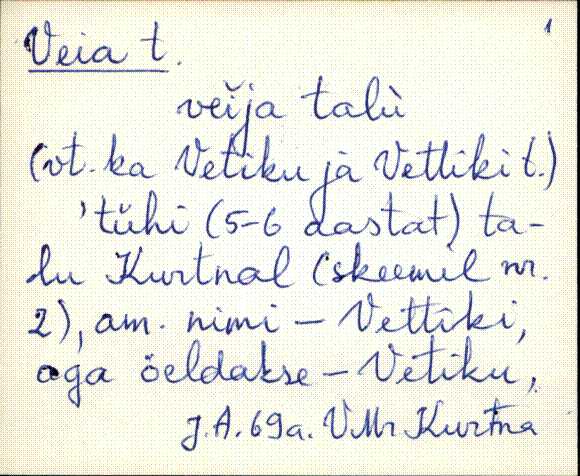 1
Veia t.
veĭja talù
(vt. ka Vetiku ja Vettiki t.)
'tühi (5-6 aastat) ta-
lu Kurtnal (skeemil nr.
2), am. nimi – Vettiki,
aga öeldakse – Vetiku,
J.A. 69a. VMr Kurtna